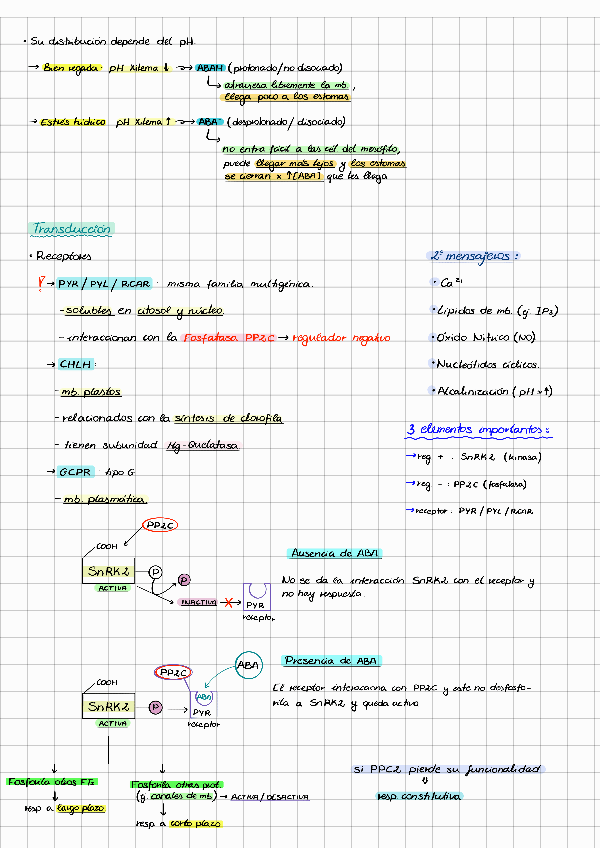 · Su distribución depende del pH.
→ Bien regada: pH Xilema ↓ → ABAH (protonado/no disociado)
↳ atraviesa libremente la mb.,
llega poco a los estomas
→ Estrés hídrico pH Xilema ↑ → ABA⁻ (desprotonado/disociado)
↳
no entra fácil a las cél del mesófilo,
puede llegar más lejos y los estomas
se cierran x ↑[ABA] que les llega
Transducción
· Receptores
→ PYR / PYL / RCAR : misma familia multigénica.
- solubles en citosol y núcleo.
- interaccionan con la Fosfatasa PP2C → regulador negativo
→ CHLH:
- mb. plastos
- relacionados con la síntesis de clorofila
- tienen subunidad Mg-Quelatasa
→ GCPR tipo G
- mb. plasmática.
2º mensajeros:
· Ca²⁺
· Lípidos de mb. (ej. IP₃)
· Óxido Nítrico (NO)
· Nucleótidos cíclicos.
· Alcalinización (pH ↑)
3 elementos importantes:
→ reg + : SnRK2 (kinasa)
→ reg - : PP2C (fosfatasa)
→ receptor: PYR / PYL / RCAR
PP2C
COOH
SnRK2
P
P
ACTIVA
INACTIVA
X
PYR
receptor
Ausencia de ABA
No se da la interacción SnRK2 con el receptor y
no hay respuesta.
PP2C
ABA
COOH
SnRK2
P
ABA
PYR
receptor
ACTIVA
Presencia de ABA
El receptor interacciona con PP2C y este no desfosfo-
rila a SnRK2 y queda activo
Fosforila otros FTs
↓
resp a largo plazo
Fosforila otras prot.
(ej. canales de mb.) → ACTIVA / DESACTIVA
↓
resp. a corto plazo
si PPC2 pierde su funcionalidad
⇓
resp. constitutiva